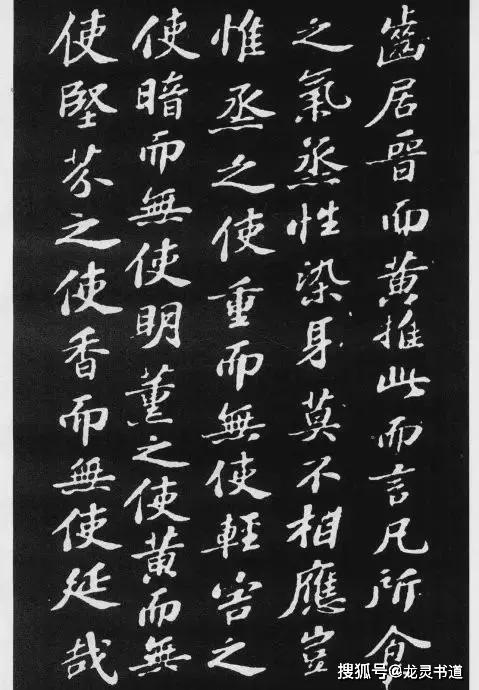 齒居晉而黃推此而言凡所食
之氣烝性染身莫不相應豈
惟烝之使重而無使輕害之
使暗而無使明薰之使黃而無
使堅芬之使香而無使延哉
搜狐号@龙灵书道